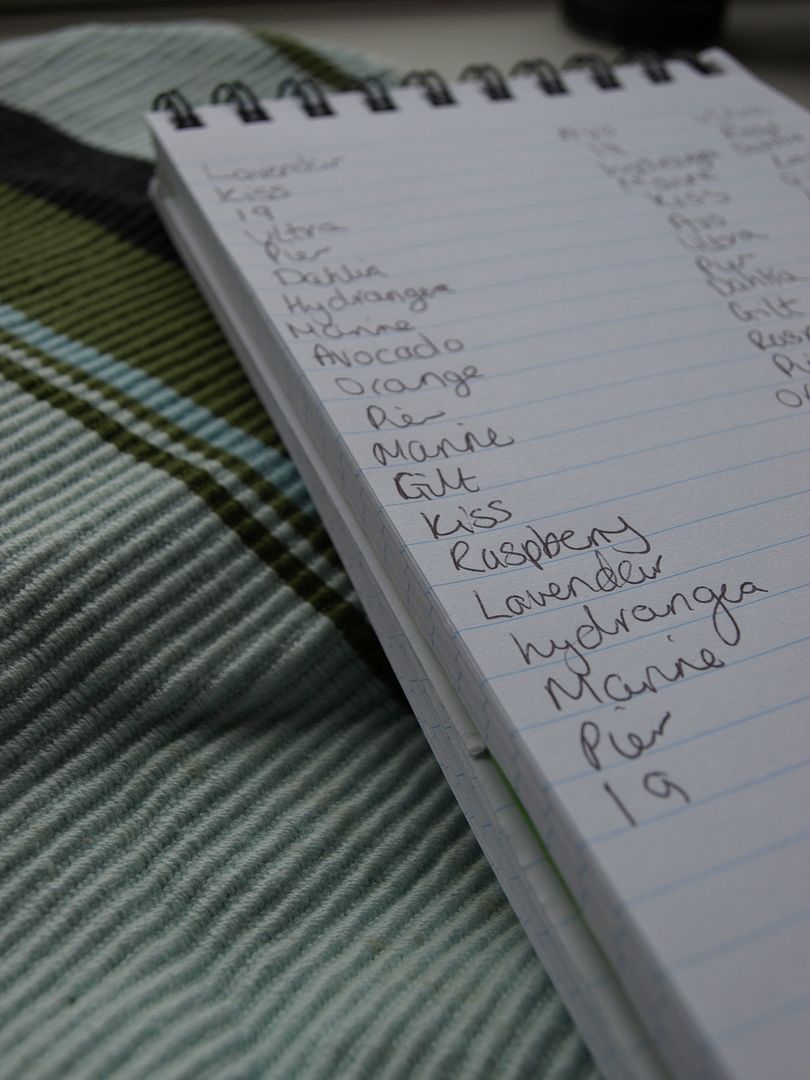 Lavender
Kiss
19
Ultra
Pier
Dahlia
Hydrangea
Marine
Avocado
Orange
Pier
Marine
Gilt
Kiss
Raspberry
Lavender
hydrangea
Marine
Pier
19
Avo
19
Hydrangea
Marine
Kiss
Avo
Ultra
Pier
Dahlia
Gilt